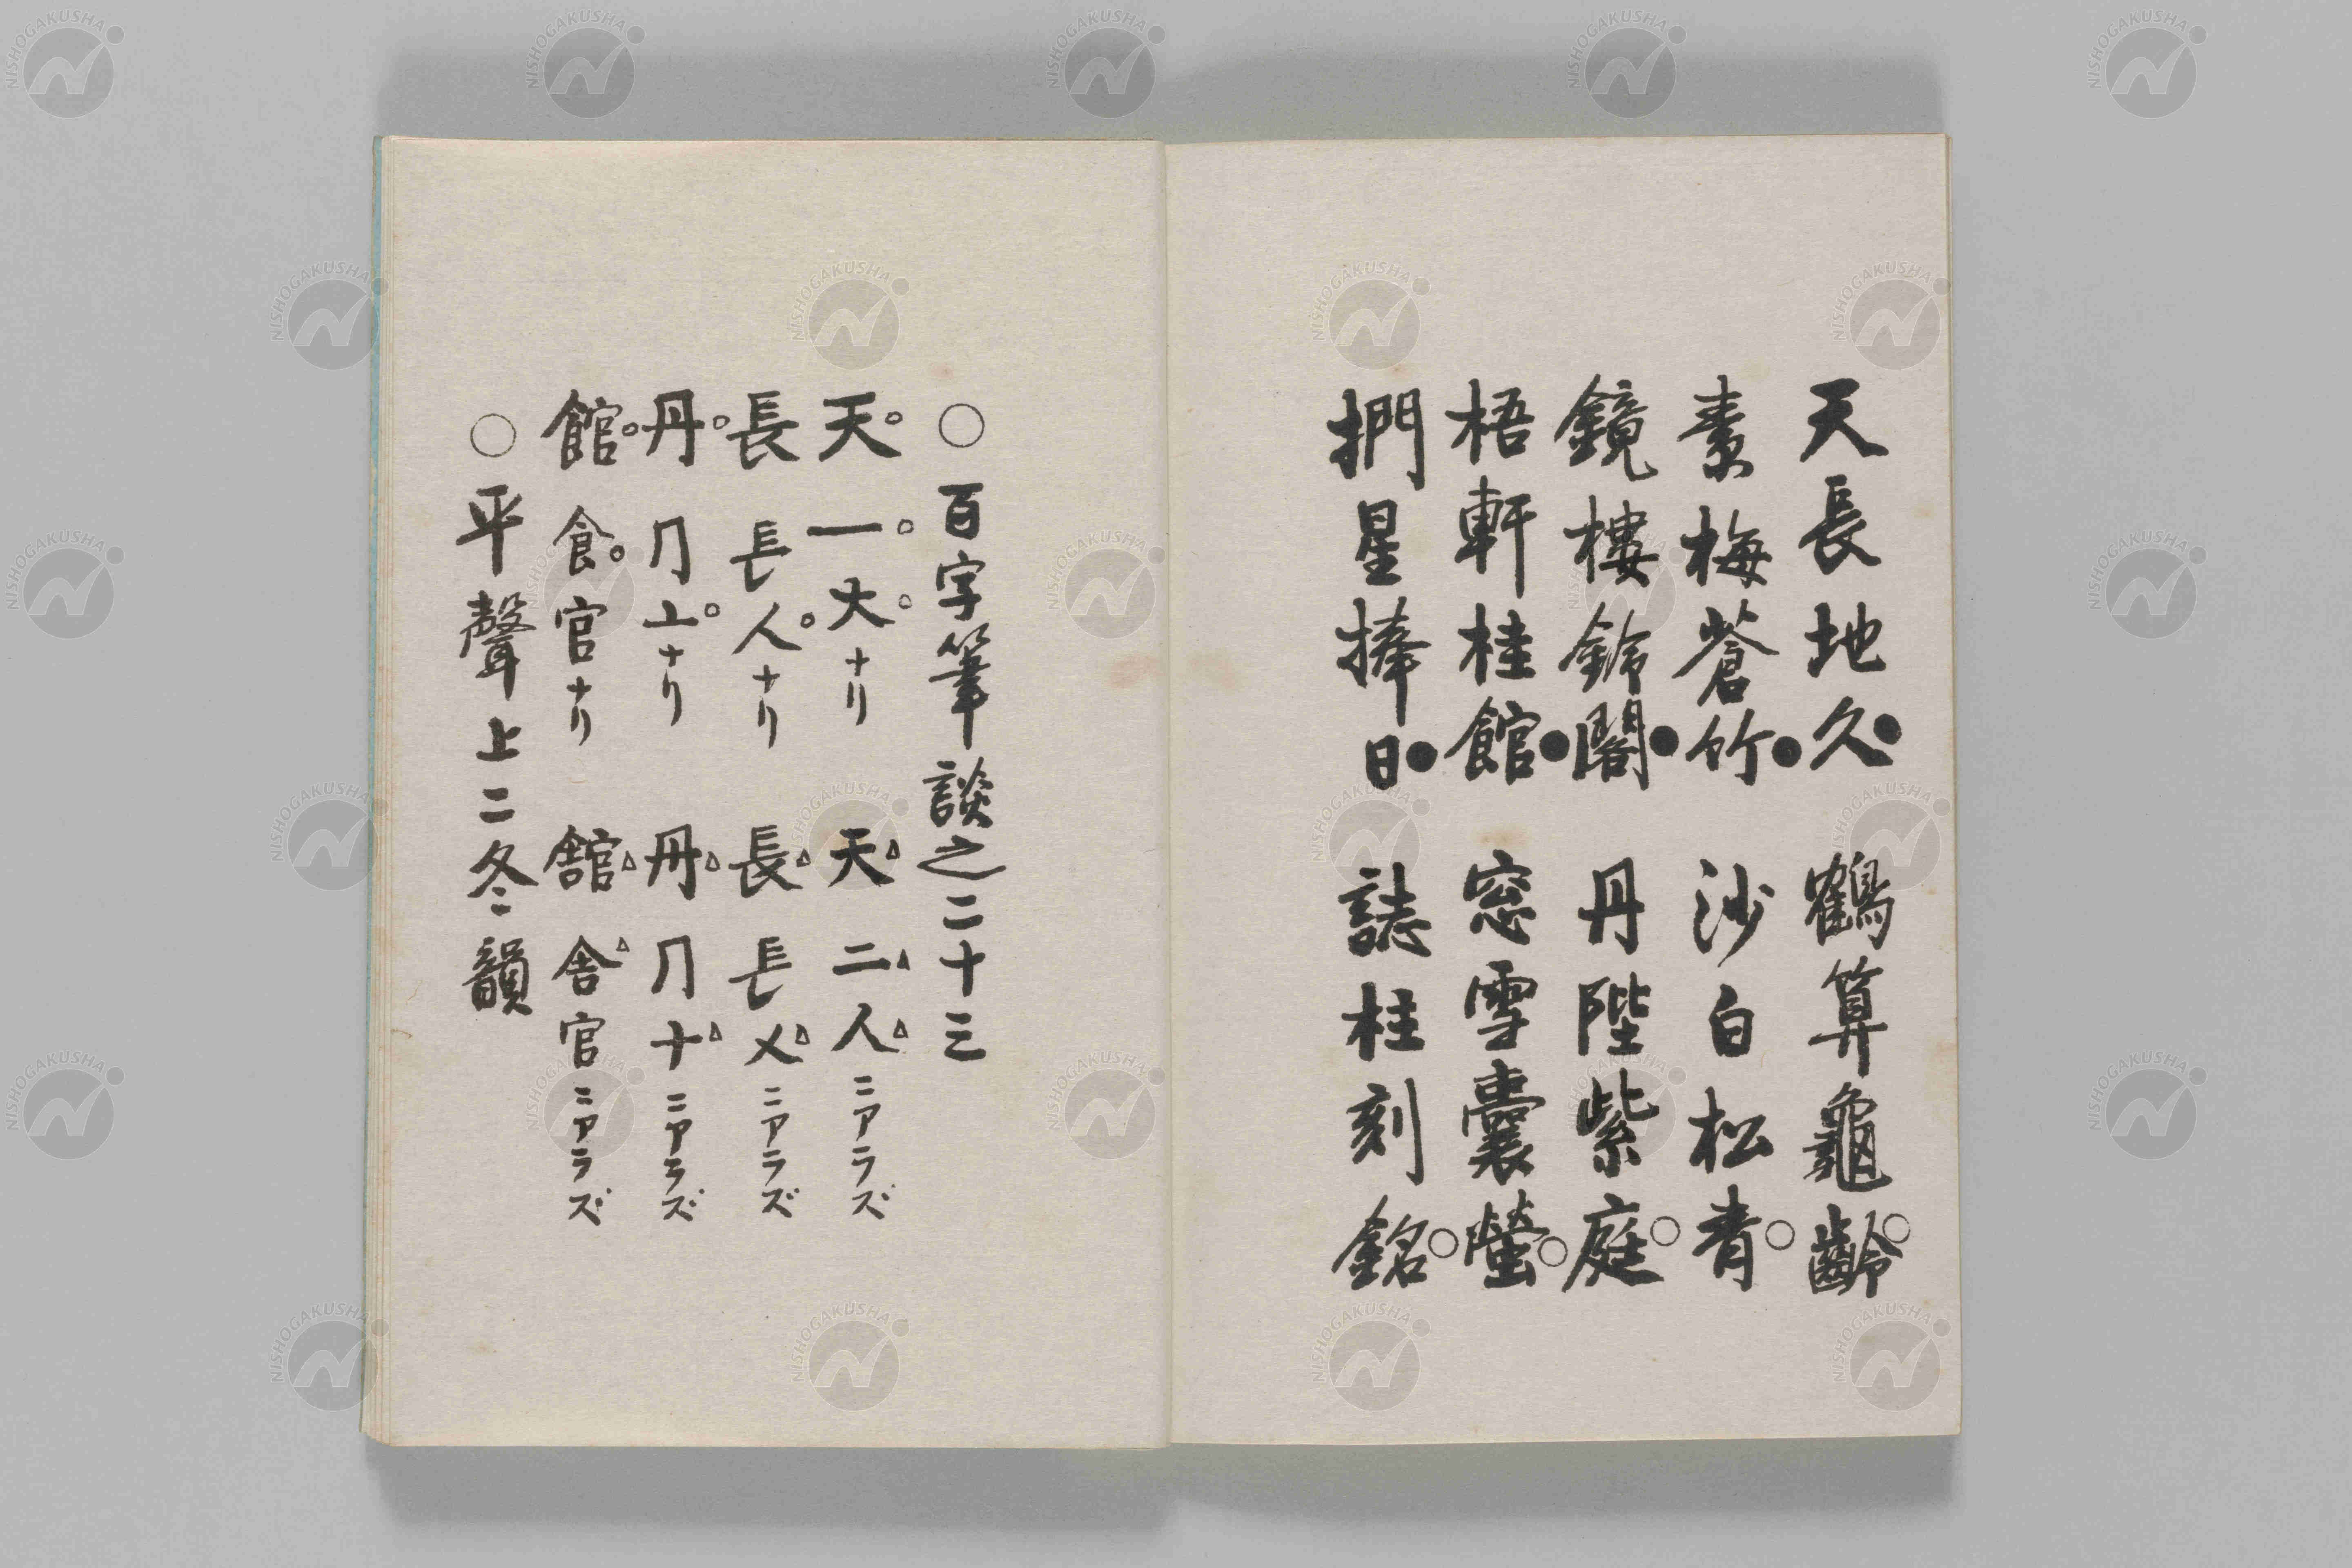 天長地久●鶴算龜齡○
素梅蒼竹●沙白松青○
鏡樓鈴閣●丹陛紫庭○
梧軒桂館●窓雪囊螢○
捫星捧日●誌柱刻銘○
○百字筆談之二十三
天 一大ナリ 天 二人ニアラズ
長 長人ナリ 長 長乂ニアラズ
丹 ⺆亠ナリ 丹 ⺆十ニアラズ
館 食官ナリ 舘 舎官ニアラズ
○平聲上二冬韻
NISHOGAKUSHA